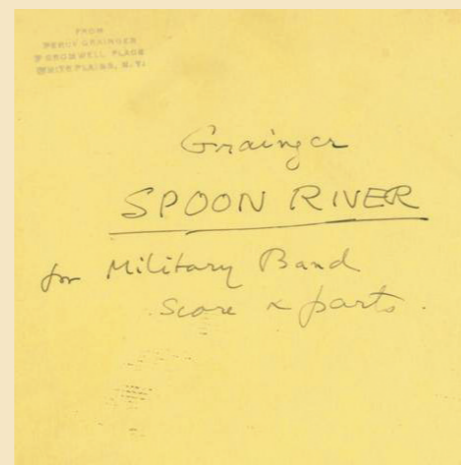 FROM
PERCY GRAINGER
7 CROMWELL PLACE
WHITE PLAINS, N. Y.
Grainger
SPOON RIVER
for Military Band
Score & parts.